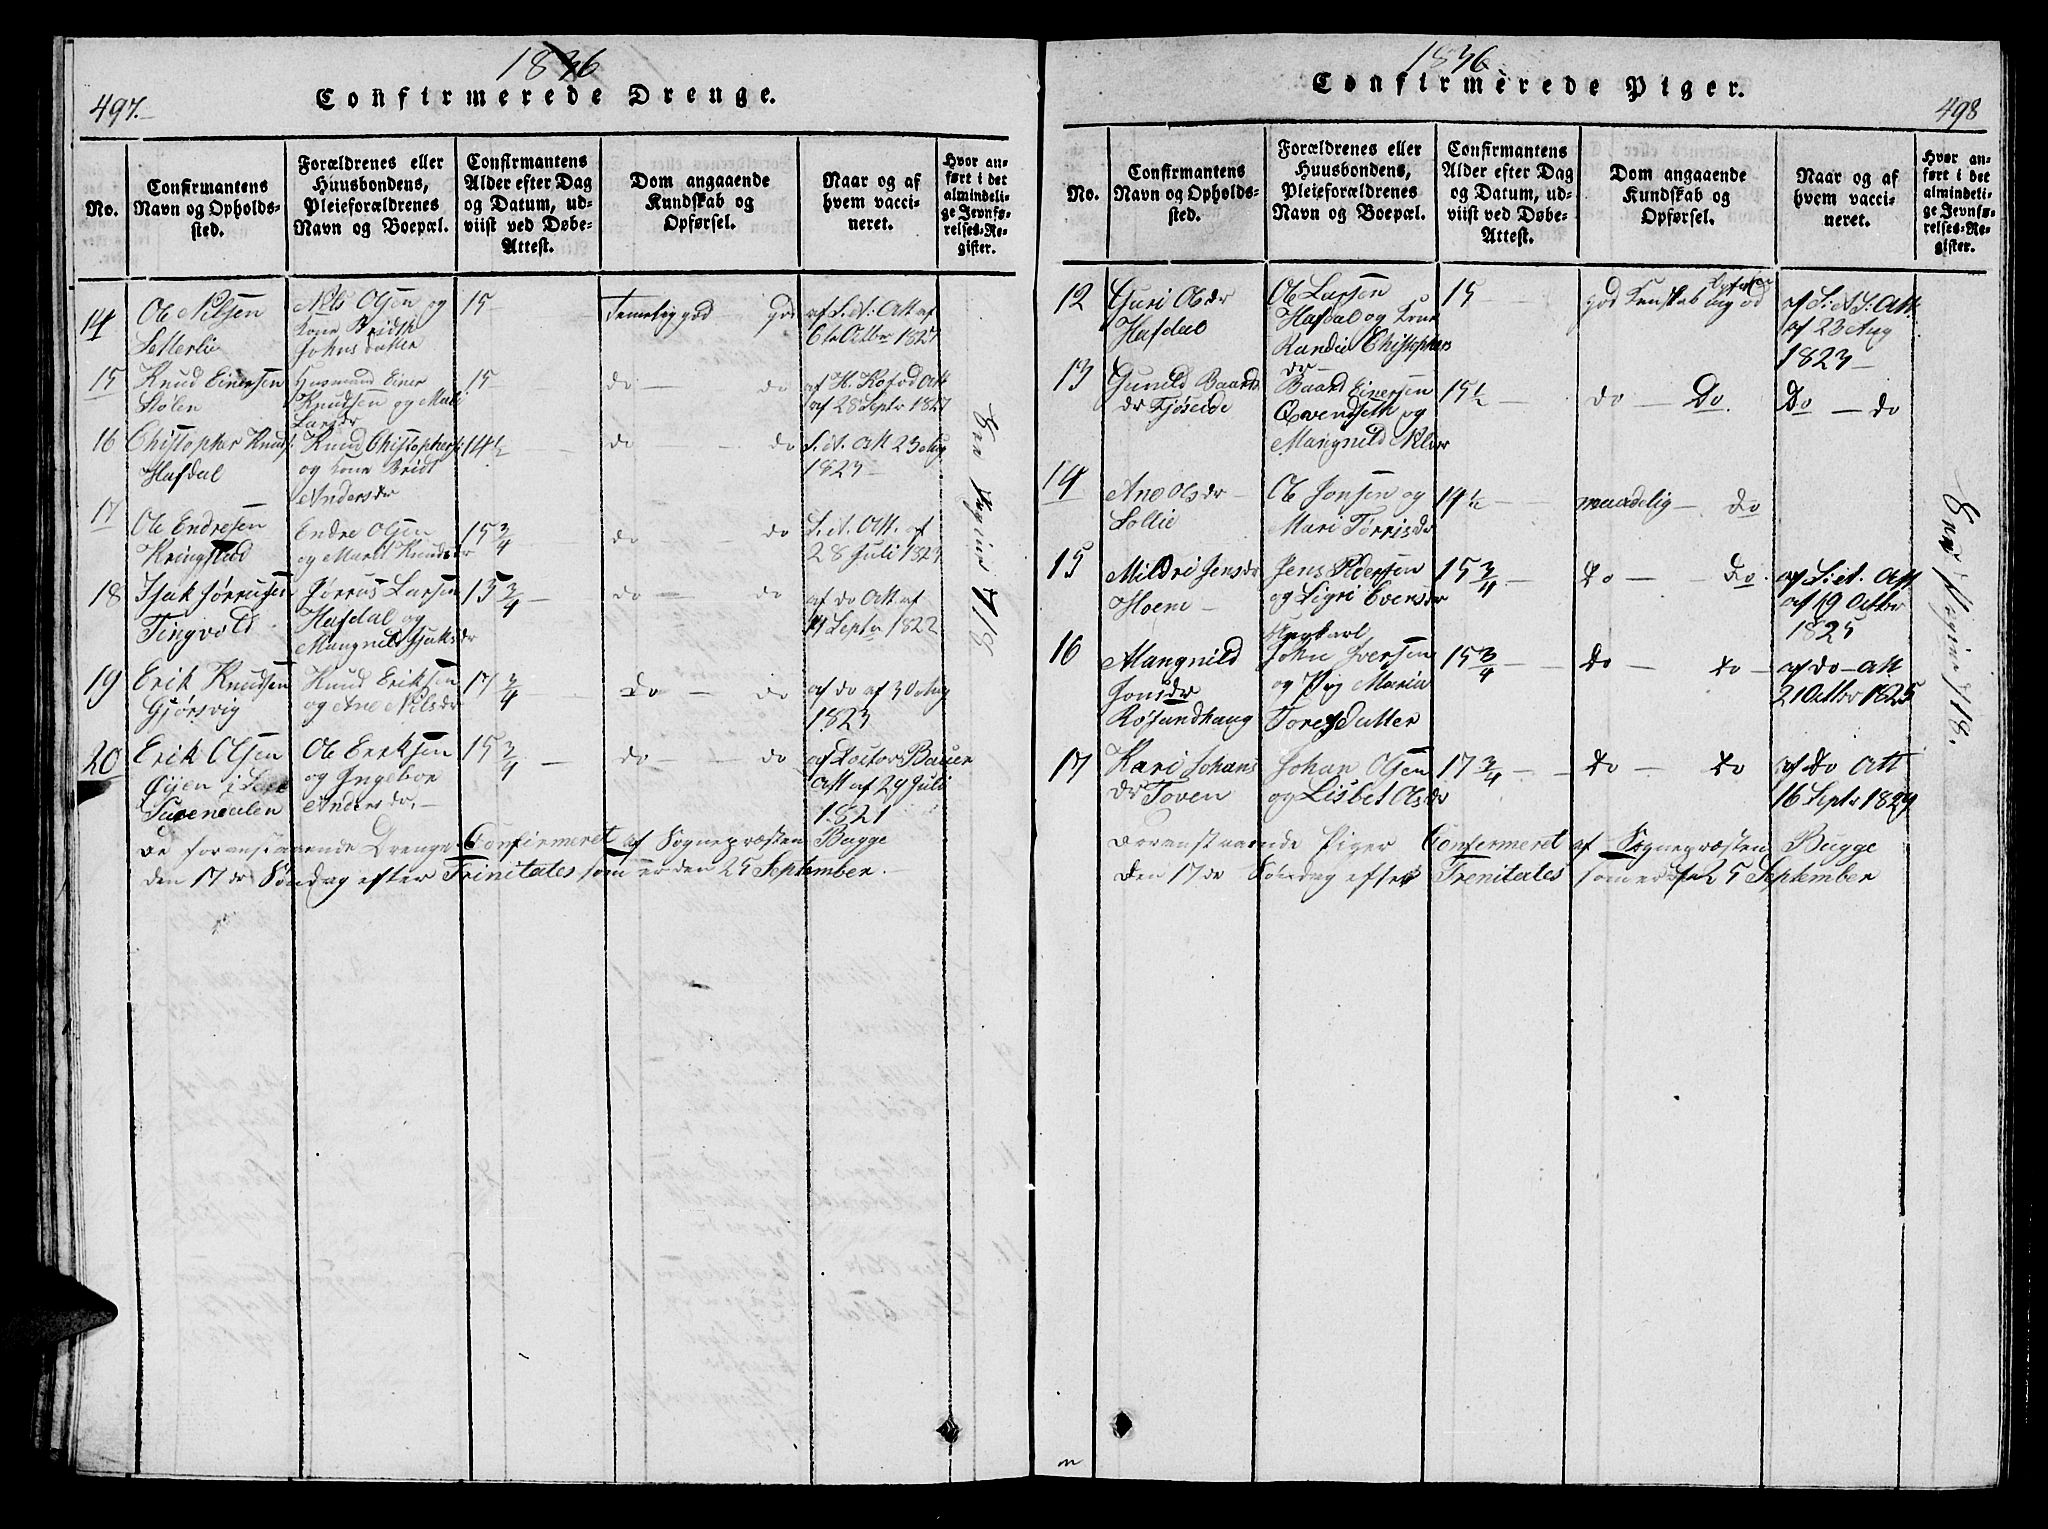 1836
497.
Confirmerede Drenge.
No.
Confirmantens
Navn og Opholds-
sted.
Forældrenes eller
Huusbondens,
Pleieforældrenes
Navn og Boepæl.
Confirmantens
Alder efter Dag
og Datum, ud-
viist ved Døbe-
Attest.
Dom angaaende
Kundskab og
Opførsel.
Naar og af
hvem vacci-
neret.
Hvor an-
ført i det
almindeli-
ge Jevnfø-
relses-Re-
gister.
14
Ole Nilsen
Setterlie
Nils Olsen og
kone Bridth
Johnsdatter
15
Temelig god god
af S. et. Att af
6te Octbr 1827
15
Knud Einersen
Stølen
Husmand Einer
Knudsen og
Larsdr
15
do — do
af H. Kofod Att
af 28 Septr 1827
16
Christopher Knuds.
Hafdal
Knud Christophers.
og kone Bridt
Andersdr
14½
do — do
S. et. Att 23 Aug
1823
17
Ole Endresen
Kringstad
Endre Olsen
og Marit Knudsdr
15 3/4
do — do
S. et. Att. af
28 Juli 1823
18
Isak Jørrusen
Tingvold
Jørrus Larsen
Hafdal og
Mangnild Isaksdr
15 3/4
do — do
af do Att af
11 Septr 1822
19
Erik Knudsen
Gjørsvig
Knud Eriksen
og Ane Nilsdr
17 3/4
do — do
af do af 30 Aug
1823
20
Erik Olsen
Øijen i
Ole Eriksen
og Ingebor
Andersdr.
15 3/4
do — do
af Doctor Bauer
Att af 29 Juli
1821
De foranstaaende Drenge Confirmeret af Sognepræsten Bugge
den 17de Søndag efter Trinitates som er den 25 September.
See Pagina 718
1836
Confirmerede Piger.
498
No.
Confirmantens
Navn og Opholds-
sted.
Forældrenes eller
Huusbondens,
Pleieforældrenes
Navn og Boepæl.
Confirmantens
Alder efter Dag
og Datum, ud-
viist ved Døbe-
Attest.
Dom angaaende
Kundskab og
Opførsel.
Naar og af
hvem vacci-
neret.
Hvor an-
ført i det
almindeli-
ge Jevnfø-
relses-Re-
gister.
12
Guri Olsdr
Hafdal
Ole Larsen
Hafdal og kone
Randi Christophers
dr
15
god Kenskab og
af S. et S. Att.
af 23 Aug
1823
13
Gunild Baards
dr Fjøseide
Baard Einersen
Qvendseth og
Mangnild Nilsdr
15½
do — Do
Do — do
14
Ane Olsdr
Sollie
Ole Jonsen og
Mari Tørrisdr
14½
maadelig — do
15
Mildri Jensdr
Hoem
Jens Pedersen
og Sigri Evensdr
15 3/4
do — do.
af S. et. Att
af 19 Octbr
1825
16
Mangnild
Jonsdr
Røsandhaug
Ungkarl
John Iversen
og Pig Maria
Toresdatter
15 3/4
do — do
af do Att
21 Octbr 1825
17
Kari Johans
dr Toven
Johan Olsen
og Lisbet Olsdr
17 3/4
do — do
af Do Att
16 Septr 1829
Foranstaaende Piger Confermeret af Sognepræsten Bugge
den 17de Søndag efter Trenitates som er den 25 September
See Pagina 718.